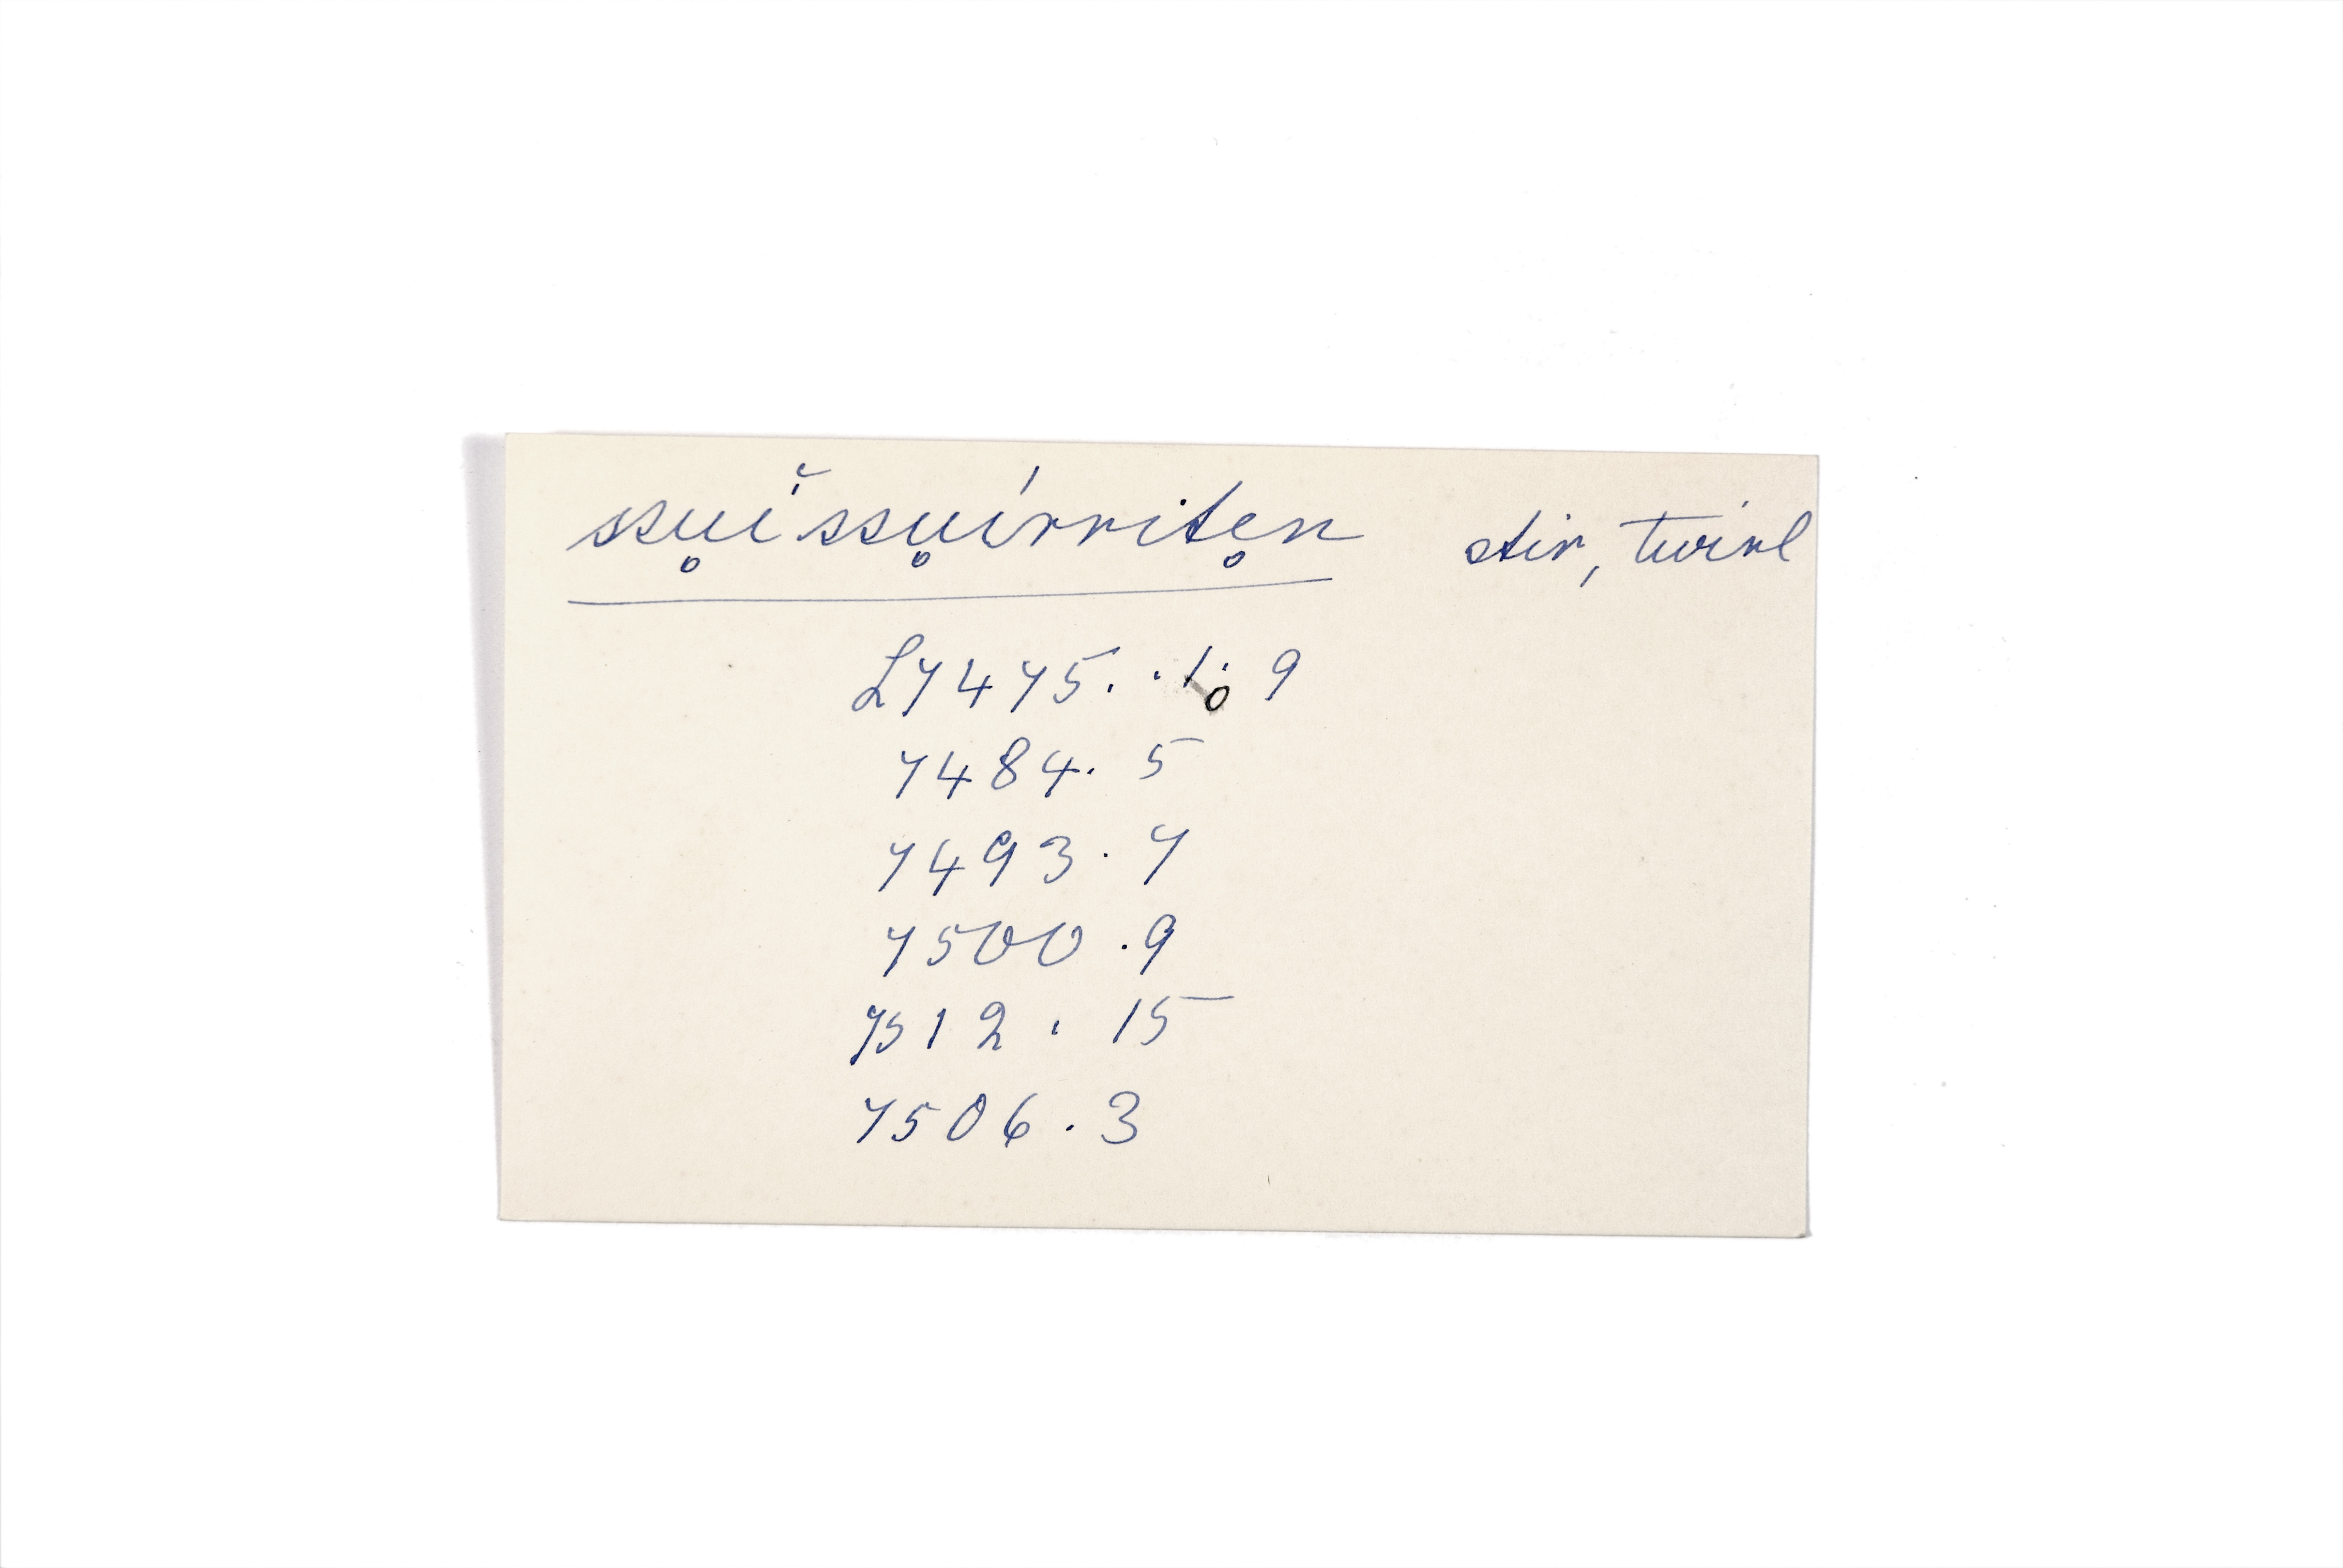 ssu̥ĭssu̥írrite̥n stir, twirl
L7475. 9
7484. 5
7493. 7
7500 .9
7512 . 15
7506 . 3